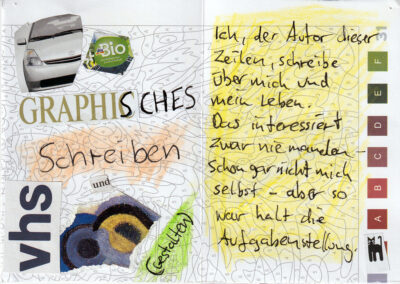 Bio
GRAPHISCHES
Schreiben
und
vhs
(Gestalten)
Ich, der Autor dieser
Zeilen, schreibe
über mich und
mein Leben.
Das interessiert
zwar niemanden –
schon gar nicht mich
selbst – aber so
war halt die
Aufgabenstellung.
31
F
E
D
C
B
A